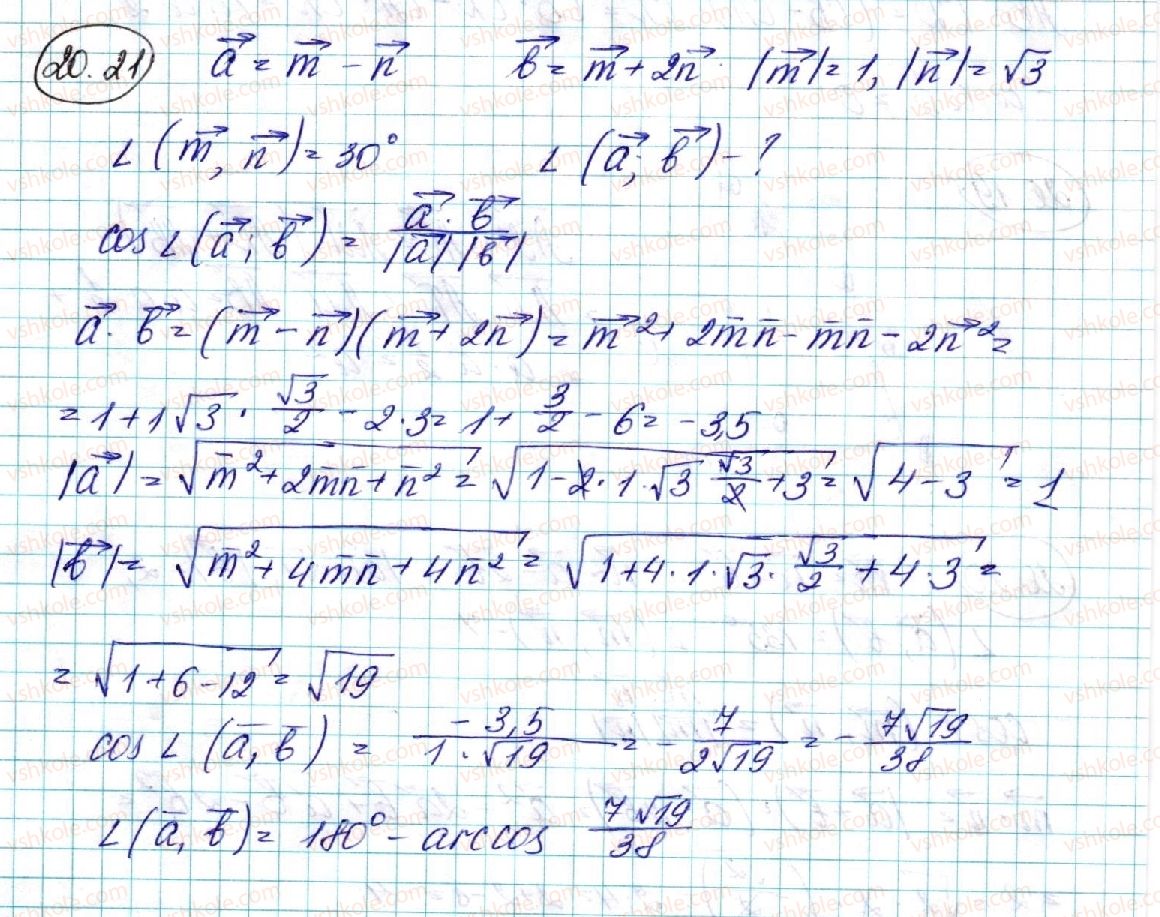 20.21 a⃗ = m⃗ − n⃗ b⃗ = m⃗ + 2n⃗ · |m⃗| = 1, |n⃗| = √3
∠(m⃗, n⃗) = 30° ∠(a⃗; b⃗) − ?
cos∠(a⃗; b⃗) = (a⃗ · b⃗)/(|a⃗| |b⃗|)
a⃗ · b⃗ = (m⃗ − n⃗)(m⃗ + 2n⃗) = m⃗² + 2m̄n̄ − m̄n̄ − 2n⃗² =
= 1 + 1√3 · √3/2 − 2·3 = 1 + 3/2 − 6 = −3,5
|a⃗| = √(m̄² + 2m̄n̄ + n̄²) = √(1 − 2·1·√3 √3/2 + 3) = √(4 − 3) = 1
|b⃗| = √(m̄² + 4m̄n̄ + 4n̄²) = √(1 + 4·1·√3 · √3/2 + 4·3) =
= √(1 + 6 − 12) = √19
cos∠(ā, b̄) = −3,5/(1·√19) = −7/(2√19) = −7√19/38
∠(ā, b̄) = 180° − arccos 7√19/38